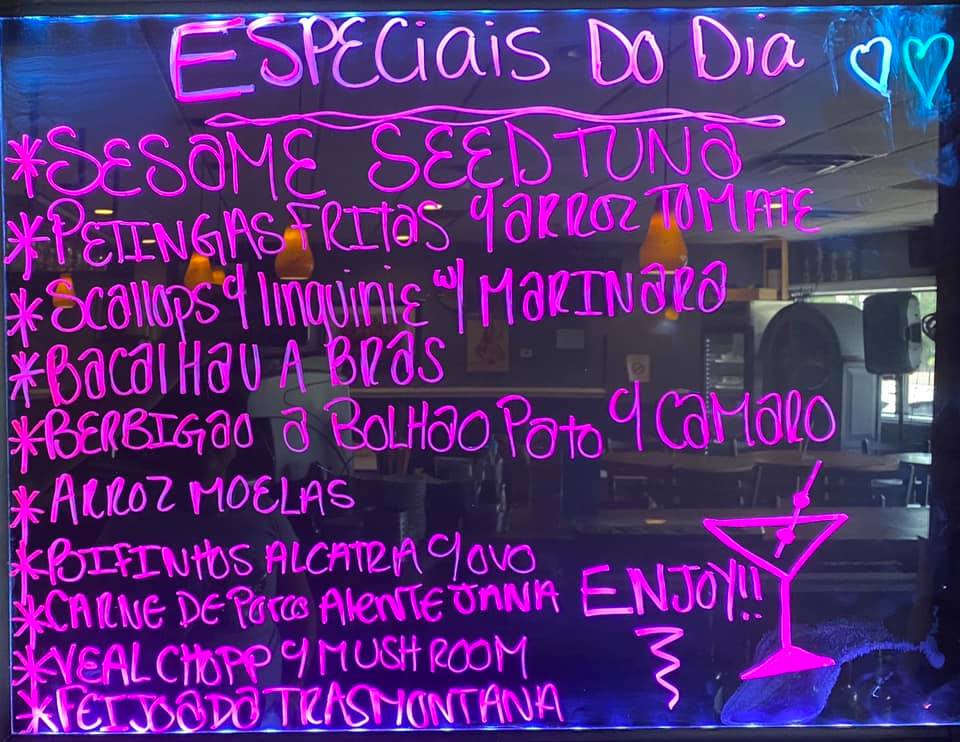 ESPECiais Do Dia
*SESAME SEED TUNA
*PETINGAS FRITAS c/ ARROZ TOMATE
*Scallops c/ linquinie w/ MARINARA
*BacalHau A BRAS
*BERBIGAO a BOLHAO Pato c/ CAMARO
*ARROZ MOELAS
*BIFINHOS ALCATRA c/ OVO
*CARNE DE PORCO AlENTEJANA
*VEAL CHOPP c/ MUSHROOM
*FEIJOADA TRASMONTANA
ENJOY!!